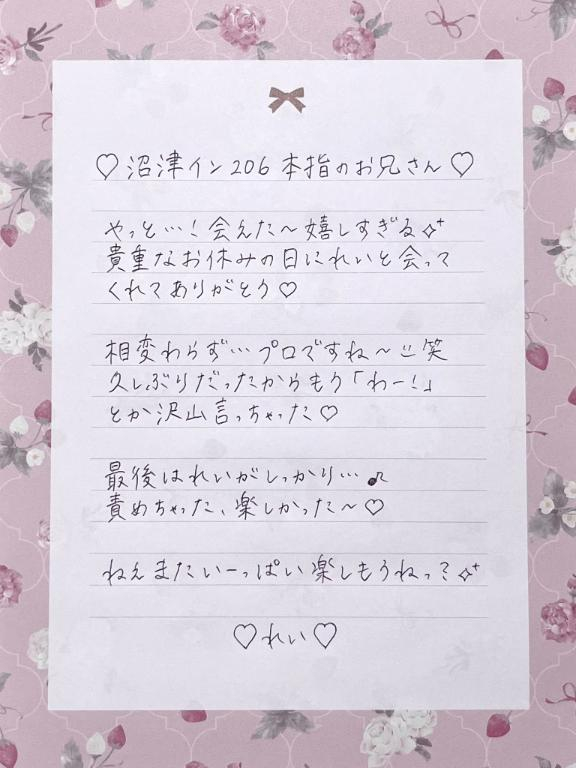 ♡沼津イン206 本指のお兄さん♡
やっと…！会えた〜嬉しすぎる✧⁺
貴重なお休みの日にれいと会って
くれてありがとう♡
相変わらず…プロですね〜笑
久しぶりだったからもう「わー！」
とか沢山言っちゃった♡
最後はれいがしっかり…♪
責めちゃった、楽しかった〜♡
ねえまたいーっぱい楽しもうねっ？✧⁺
♡れい♡